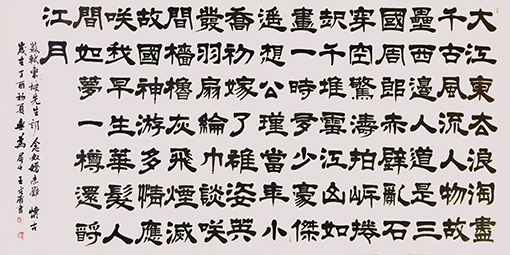 大江東去浪淘盡
千古風流人物故
壘西邊人道是三
國周郎赤壁亂石
穿空驚濤拍岸捲
起千堆雪江山如
畫一時多少豪傑
遙想公瑾當年小
喬初嫁了雄姿英
發羽扇綸巾談咲
間檣櫓灰飛煙滅
故國神游多情應
咲我早生華髮人
間如夢一樽還酹
江月
東坡先生詞念奴嬌赤壁懷古
歲在丁酉初夏